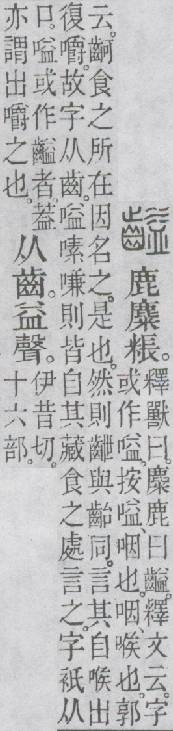 鹿麋粻。釋獸曰。麋鹿曰齸。釋文云。字
或作嗌。按嗌、咽也。咽、喉也。郭
云。齝食之所在。因名之。是也。然則齸與齝同。言其自喉出
復嚼。故字从齒。嗌嗉嗛則皆自其藏食之處言之。字衹从
口。嗌或作齸者、葢
亦謂出嚼之也。
从齒。益聲。伊昔切。
十六部。